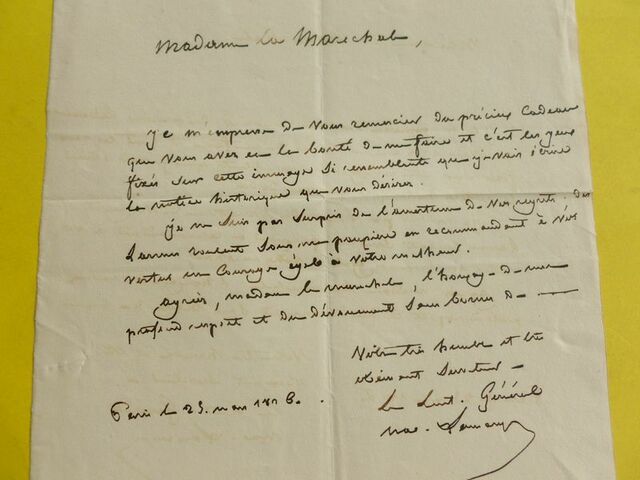 Madame la Marechale,
je m'empresse de vous remercier du précieux cadeau
que vous avez eu la bonté de me faire et c'est les yeux
fixés sur cette image si ressemblante que je vais écrire
la notice historique que vous désirez.
je ne suis pas surpris de l'amertume de vos regrets. des
larmes roulent sous ma paupière en recommandant à vos
vertus un courage égal à votre malheur.
agréez, madame la marechale, l'homage de mon
profond respect et du dévouement sans bornes de
Votre très humble et très
obéissant serviteur
Le Lieut. Général
Paris le 25. mars 1826.